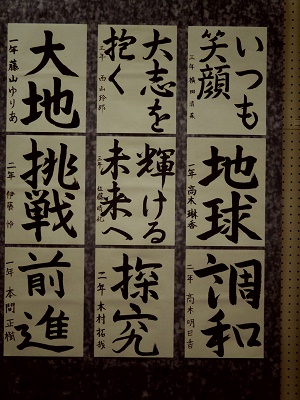 いつも
笑顔
三年
大志を
抱く
三年 西山
大地
一年 藤山ゆりあ
地球
一年 高木琳香
輝ける
未来へ
三年 佐藤
挑戦
二年 伊藤 怜
調和
二年 高木明日香
探究
二年 木村拓哉
前進
一年 本間正樹